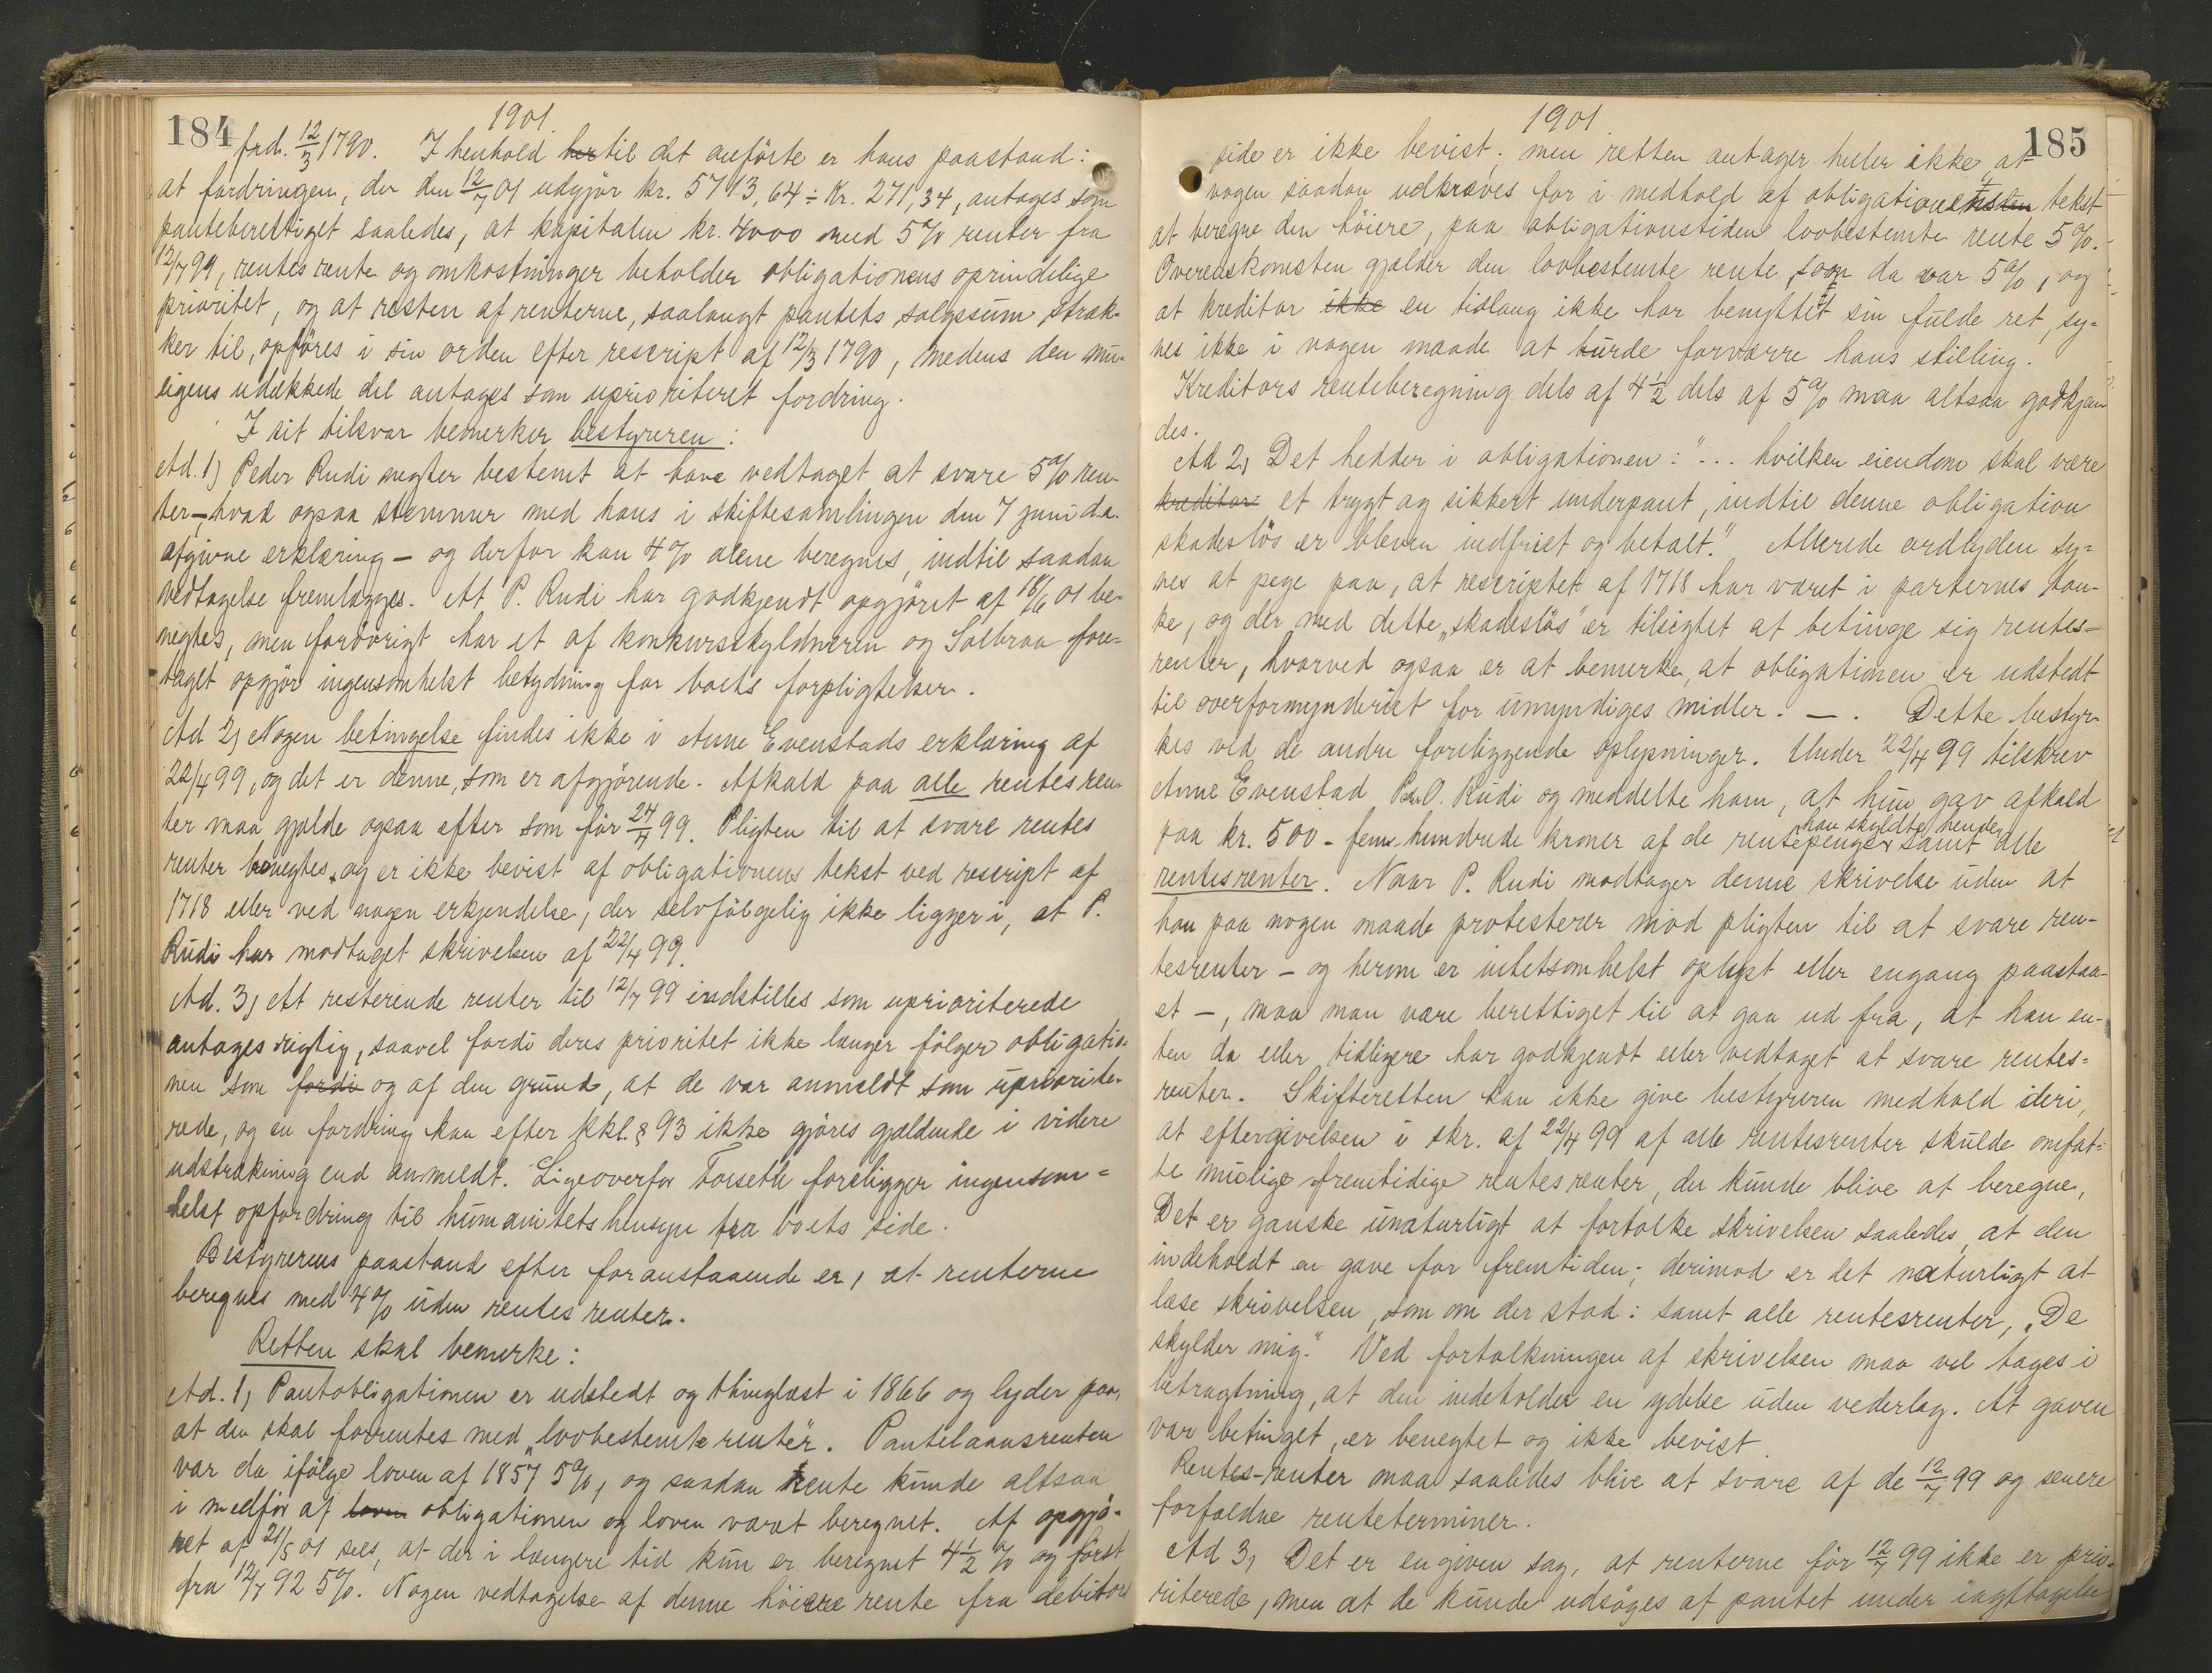 184
1901
frd. 12/3 1790. I henhold her til det anførte er hans paastand:
at fordringen, der den 12/7 01 udgjør kr. 5713,64 ÷ Kr. 271,34, antages som
panteberettiget saaledes, at kapitalen kr. 4000 med 5% renter fra
12/7 99, rentesrente og omkostninger beholder obligationens oprindelige
prioritet, og at resten af renterne, saalangt pantets salgssum stræk-
ker til, opføres i sin orden efter rescript af 12/3 1790, medens den mu-
ligens udækkede del antages som uprioriteret fordring.
I sit tilsvar bemerker bestyreren:
Ad. 1) Peder Rudi negter bestemt at have vedtaget at svare 5% ren-
ter - hvad ogsaa stemmer med hans i skiftesamlingen den 7 juni d.a.
afgivne erklæring - og derfor kan 4% alene beregnes, indtil saadan
vedtagelse fremlægges. At P. Rudi har godkjendt opgjøret af 18/6 01 be-
negtes, men forøvrigt har et af konkursskyldneren og Solbraa fore-
taget opgjør ingensomhelst betydning for boets forpligtelser.
Ad 2) Nogen betingelse findes ikke i Anne Evenstads erklæring af
22/4 99, og det er denne, som er afgjørende. Afkald paa alle rentesren-
ter maa gjælde ogsaa efter som før 24/4 99. Pligten til at svare rentes
renter benegtes, og er ikke bevist af obligationens tekst ved rescript af
1718 eller ved nogen erkjendelse, der selvfølgelig ikke ligger i, at P.
Rudi har modtaget skrivelsen af 22/4 99.
Ad. 3) At resterende renter til 12/7 99 indstilles som uprioriterede
antages rigtig, saavel fordi deres prioritet ikke længer følger obligatio-
nen som fordi og af den grund, at de var anmeldt som upriorite-
rede, og en fordring kan efter kkl. § 93 ikke gjøres gjældende i videre
udstrækning end anmeldt. Ligeoverfor Forseth foreligger ingensom-
helst opfordring til humanitetshensyn fra boets side.
Bestyrerens paastand efter foranstaaende er, at renterne
beregnes med 4% uden rentes renter.
Retten skal bemerke:
Ad. 1) Pantobligationen er udstedt og thinglæst i 1866 og lyder paa,
at den skal forrentes med „lovbestemte renter". Pantelaansrenten
var da ifølge loven af 1857 5%, og saadan rente kunde altsaa
i medfør af loven obligationen og loven været beregnet. Af opgjø-
ret af 21/5 01 sees, at der i længere tid kun er beregnet 4½ % og først
fra 12/7 92 5%. Nogen vedtagelse af denne høiere rente fra debitors
1901
185
side er ikke bevist; men retten antager heller ikke, at
nogen saadan udkræves for i medhold af obligationens tekst
at beregne den høiere, paa obligationstiden lovbestemte rente 5%.
Overenskomsten gjælder den lovbestemte rente, som da var 5%, og
at kreditor ikke en tidlang ikke har benyttet sin fulde ret, sy-
nes ikke i nogen maade at burde forværre hans stilling.
Kreditors renteberegning dels af 4½ dels af 5% maa altsaa godkjen
des.
Ad 2) Det hedder i obligationen: "... hvilken eiendom skal være
kreditor et trygt og sikkert underpant, indtil denne obligation
skadesløs er bleven indfriet og betalt." Allerede ordlyden sy-
nes at pege paa, at rescriptet af 1718 har været i parternes tan-
ke, og der med dette „skadesløs" er tilsigtet at betinge sig rentes-
renter, hvorved ogsaa er at bemerke, at obligationen er udstedt
til overformynderiet for umyndiges midler. — . Dette bestyr-
kes ved de andre foreliggende oplysninger. Under 22/4 99 tilskrev
Anne Evenstad P. O. Rudi og meddelte ham, at hun gav afkald
paa kr. 500 - fem hundrede kroner af de rentepenger han skyldte hende samt alle
rentesrenter. Naar P. Rudi modtager denne skrivelse uden at
han paa nogen maade protesterer mod pligten til at svare ren-
tesrenter - og herom er intetsomhelst oplyst eller engang paastaa-
et -, maa man være berettiget til at gaa ud fra, at han en-
ten da eller tidligere har godkjendt eller vedtaget at svare rentes-
renter. Skifteretten kan ikke give bestyreren medhold deri,
at eftergivelsen i skr. af 22/4 99 af alle rentesrenter skulde omfat-
te mulige fremtidige rentesrenter, der kunde blive at beregne,
Det er ganske unaturligt at fortolke skrivelsen saaledes, at den
indeholdt en gave for fremtiden; derimod er det naturligt at
læse skrivelsen, som om der stod: samt alle rentesrenter, „De
skylder mig." Ved fortolkningen af skrivelsen maa vel tages i
betragtning, at den indeholder en ydelse uden vederlag. At gaven
var betinget, er benegtet og ikke bevist.
Rentes-renter maa saaledes blive at svare af de 12/7 99 og senere
forfaldne renteterminer.
Ad 3) Det er en given sag, at renterne før 12/7 99 ikke er prio-
riterede, men at de kunde udsøges af pantet under iagttagelse